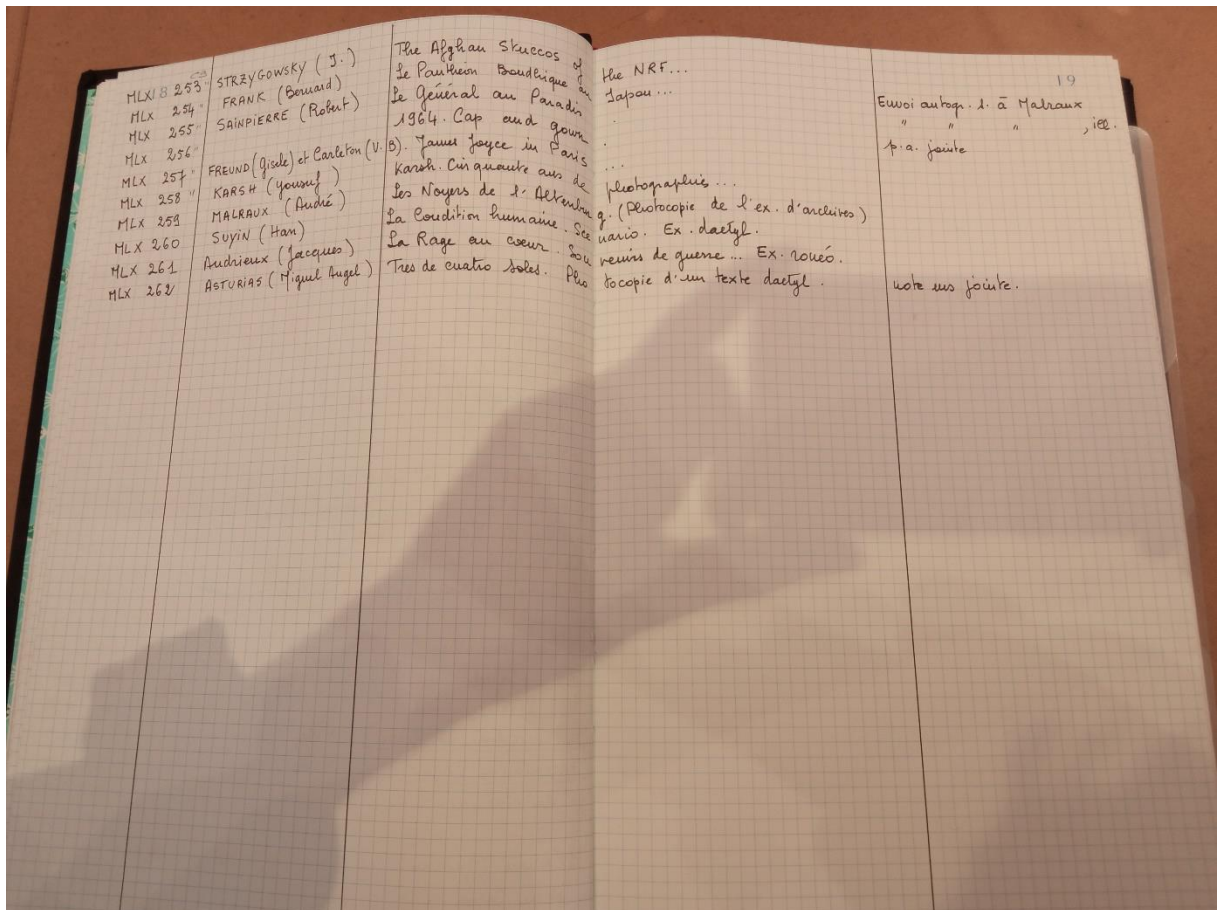 19
MLX 8 253 " STRZYGOWSKY (J.) The Afghan Stuccos of the NRF...
MLX 254 " FRANK (Bernard) Le Panthéon Bouddhique au Japon... Envoi autogr. s. à Malraux
MLX 255 " SAINPIERRE (Robert) Le Général au Paradis . " " " , ill.
MLX 256 " 1964. Cap and gown . p.a. jointe
MLX 257 " FREUND (Gisèle) et Carleton (V. B). James Joyce in Paris ...
MLX 258 " KARSH (Yousuf) Karsh. Cinquante ans de photographies...
MLX 259 MALRAUX (André) Les Noyers de l'Altenburg. (Photocopie de l'ex. d'archives)
MLX 260 SUYIN (Han) La Condition humaine. Scenario. Ex. dactyl.
MLX 261 Andrieux (Jacques) La Rage au coeur. Souvenirs de guerre... Ex. ronéo.
MLX 262 ASTURIAS (Miguel Angel) Tres de cuatro soles. Photocopie d'un texte dactyl. note ms jointe.